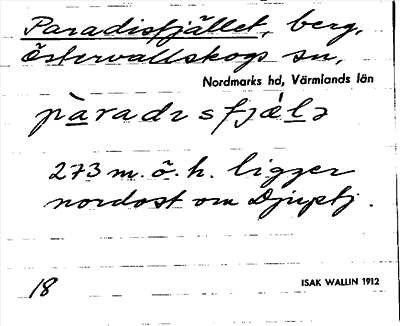 Paradisfjället, berg,
Östervallskogs sn,
Nordmarks hd, Värmlands län
pàradɩsfjǽlə
273 m. ö. h. ligger
nordost om Djuptj.
18
ISAK WALLIN 1912